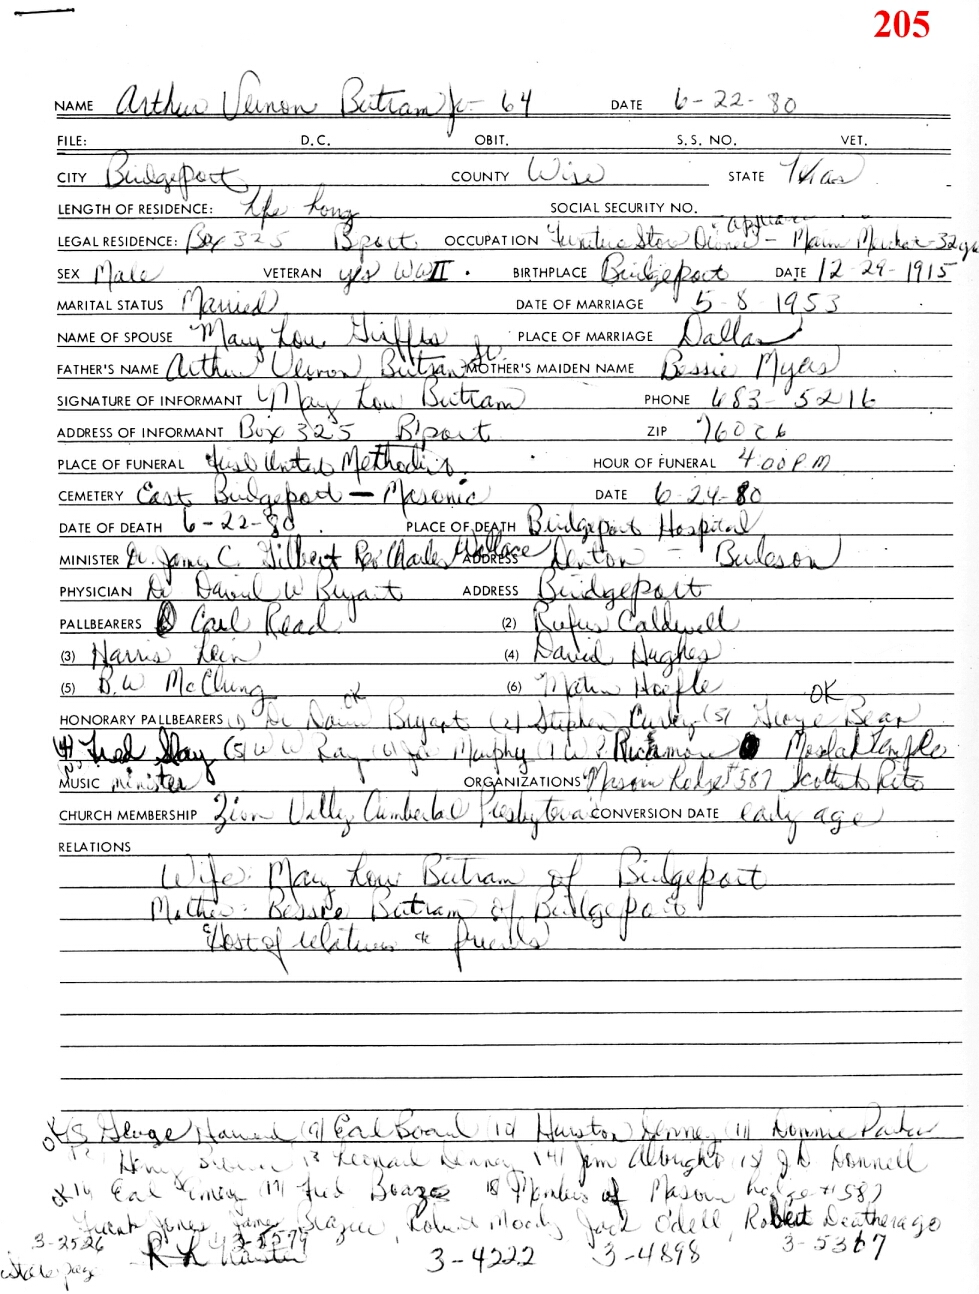 205
NAME Arthur Vernon Butram Jr - 64 DATE 6-22-80
FILE: D.C. OBIT. S.S. NO. VET.
CITY Bridgeport COUNTY Wise STATE Texas
LENGTH OF RESIDENCE: Life Long SOCIAL SECURITY NO.
LEGAL RESIDENCE: Box 325 Bport OCCUPATION Furniture Store Owner -
SEX Male VETERAN yes WWII . BIRTHPLACE Bridgeport DATE 12-29-1915
MARITAL STATUS Married DATE OF MARRIAGE 5-8-1953
NAME OF SPOUSE Mary Lou PLACE OF MARRIAGE Dallas
FATHER'S NAME Arthur Vernon Butram Sr. MOTHER'S MAIDEN NAME Bessie Myers
SIGNATURE OF INFORMANT Mary Lou Butram PHONE 683-5216
ADDRESS OF INFORMANT Box 325 B'port ZIP 76026
PLACE OF FUNERAL First United Methodist HOUR OF FUNERAL 4:00 P.M
CEMETERY East Bridgeport - Masonic DATE 6-24-80
DATE OF DEATH 6-22-80 . PLACE OF DEATH Bridgeport Hospital
MINISTER Dr. James C. Gilbert Rev Charles Wallace ADDRESS Denton - Burleson
PHYSICIAN Dr David W Bryant ADDRESS Bridgeport
PALLBEARERS Carl Read (2) Rufus Caldwell
(3) Harris (4) David Hughes
(5) B.W. McClung (6) Hoefle
OK OK
HONORARY PALLBEARERS (1) Dr David Bryant (2) Stephen (3) George Bean
(4) Fred Slay (5) W W Ray (6) Joe Murphy (7) W. Richmond Moslah Temple
MUSIC minister ORGANIZATIONS Mason Lodge #587 Scottish Rite
CHURCH MEMBERSHIP Zion Valley Cumberland Presbyterian CONVERSION DATE early age
RELATIONS
Wife: Mary Lou Butram of Bridgeport
Mother: Bessie Butram of Bridgeport
Host of relatives & friends
OK (8 George (9) Earl Board (10) Houston Denney (11) Donnie Parker
12 13 Leonard Denney (14) Jim Albright (15) J.D. Donnell
ok 16 Earl (17) Fred Boaze 18 Members of Mason Lodge #587
Frank Jones, James, Robert Moody, Jack O'dell, Robert Deatherage
3-2526 3-5579 3-4222 3-4898 3-5367